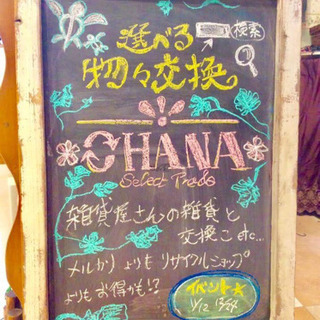 選べる
検索
物々交換。
OHANA
Select Trade
雑貨屋さんの雑貨と
交換こする…
メルカリよりもリサイクルショップ
よりもお得かも!?
イベント
11/12